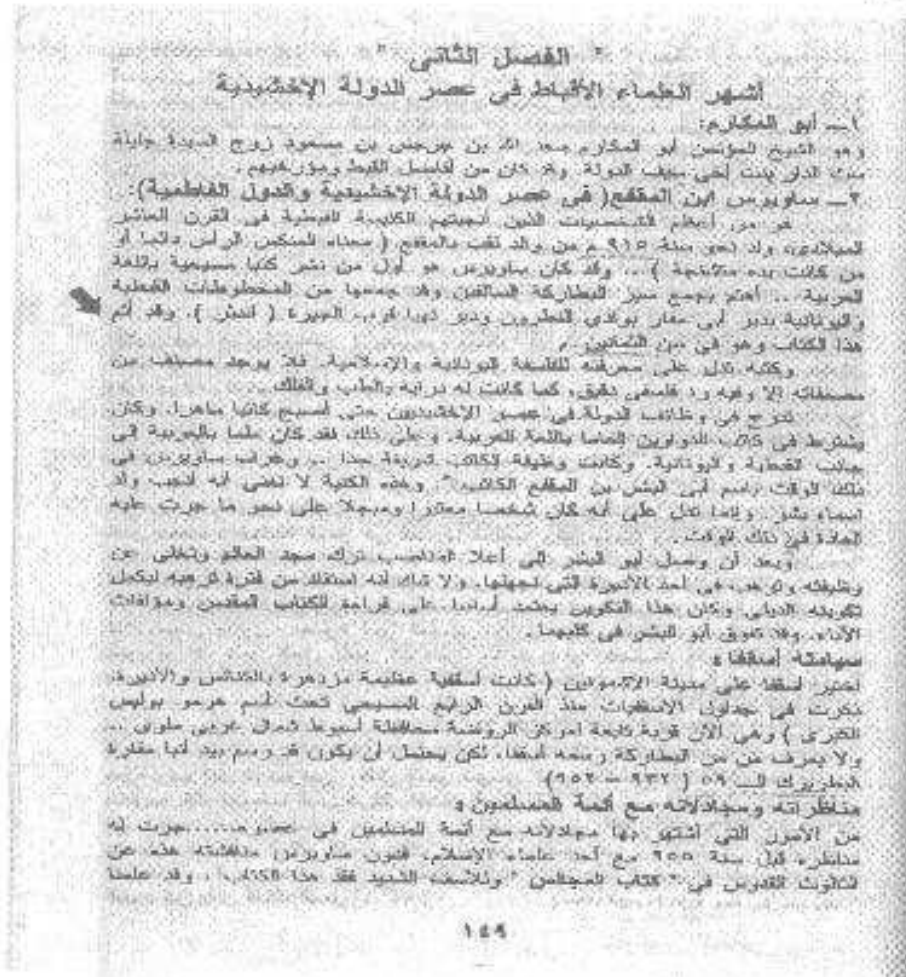 " الفصل الثانى "
أشهر العلماء الأقباط فى عصر الدولة الإخشيدية
١ــ أبو المكارم:
وهو الشيخ المؤتمن أبو المكارم سعد الله بن جرجس بن مسعود زوج السيدة جليلة
ست الدار بنت أخى سيف الدولة. وقد كان من أفاضل القبط ومؤرخيهم.
٢ــ ساويرس ابن المقفع( فى عصر الدولة الإخشيدية والدول الفاطمية):
هو من أعظم الشخصيات الذين أنجبتهم الكنيسة القبطية فى القرن العاشر
الميلادى، ولد نحو سنة ٩١٥ م من والد لقب بالمقفع ( معناه المنكس الرأس دائما أو
من كانت يده متشنجة ) ... وقد كان ساويرس هو أول من نشر كتبا مسيحية باللغة
العربية .. أهتم بجمع سير البطاركة السالفين وقد جمعها من المخطوطات القبطية
واليونانية بدير أبى مقار بوادى النطرون ودير نهيا قرب الجيزة ( اندثر ). وقد أتم
هذا الكتاب وهو فى سن الثمانين.
وكتبه تدل على معرفته للفلسفة اليونانية والإسلامية. فلا يوجد مصنف من
مصنفاته إلا وفيه رد فلسفى دقيق، كما كانت له دراية بالطب والفلك.
تدرج فى وظائف الدولة فى عصر الإخشيديين حتى أصبح كاتبا ماهرا. وكان
يشترط فى كاتب الدواوين إلماما باللغة العربية. وعلى ذلك فقد كان ملما بالعربية إلى
جانب القبطية واليونانية. وكانت وظيفة الكاتب شريفة جدا ... وعرف ساويرس فى
ذلك الوقت باسم أبى البشر بن المقفع الكاتب.. وهذه الكنية لا تعنى أنه أنجب ولد
اسماه بشر. وإنما تدل على أنه كان شخصا معتبرا ومبجلا على نحو ما جرت عليه
العادة فى ذلك الوقت.
وبعد أن وصل أبو البشر إلى أعلا المناصب ترك مجد العالم وتخلى عن
وظيفته وترهب فى أحد الأديرة التى نجهلها. ولا شك أنه استفاد من فترة ترهبه ليكمل
تكوينه الدينى وكان هذا التكوين يعتمد أساسا على قراءة الكتاب المقدس ومؤلفات
الآباء. وقد تفوق أبو البشر فى كليهما.
سيامته أسقفا :
اختير أسقفا على مدينة الأشمونين ( كانت أسقفية عظيمة مزدهرة بالكنائس والأديرة،
ذكرت فى جداول الأسقفيات منذ القرن الرابع المسيحى تحت أسم هرمو بوليس
الكبرى ) وهى الآن قرية تابعة لمركز الروضة محافظة أسيوط شمال غربى ملوى ..
ولا يعرف من من البطاركة رسمه أسقفا، لكن يحتمل أن يكون قد رسم بيد أنبا مقارة
البطريرك الــ ٥٩ ( ٩٣٢ – ٩٥٢)
مناظراته ومجادلاته مع أئمة المسلمين :
من الأمور التى أشتهر بها مجادلاته مع أئمة المسلمين فى عصره......جرت له
مناظرة قبل سنة ٩٥٥ مع أحد علماء الإسلام، فدون ساويرس مناقشته هذه عن
الثالوث القدوس فى " كتاب المجالس " وللأسف الشديد فقد هذا الكتاب ، وقد علمنا
١٤٩